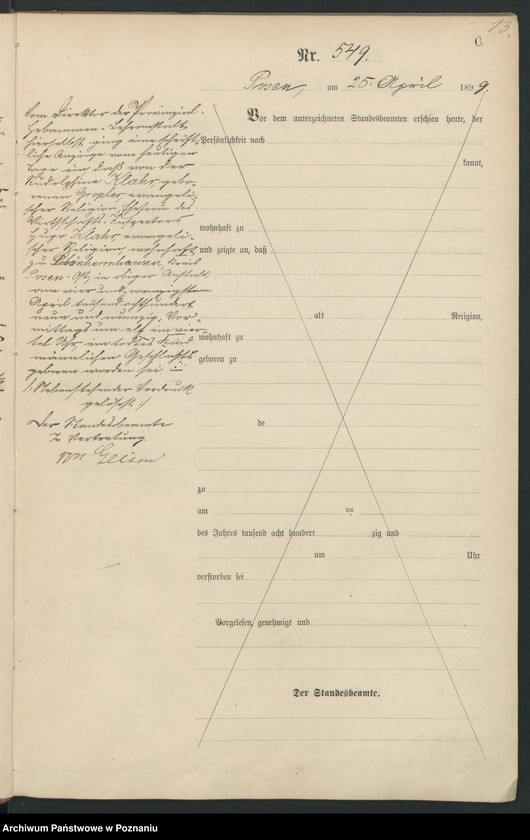 13.
C.
Nr. 549.
Posen, am 25. April 1899.
Vom Direktor der Provinzial-
Hebammen-Lehranstalt
hierselbst ging eine schrift-
liche Anzeige vom heutigen
Tage ein, daß von der
Klahr, gebo-
renen evangeli-
scher Religion, Ehefrau des
Wirthschafts-Inspectors
Hugo Klahr, evangeli-
scher Religion, wohnhaft
zu Schönherrnhausen Kreis
Posen-Ost, in obiger Anstalt
am vier und zwanzigsten
April tausend achthundert
neun und neunzig, Vor-
mittags um elf ein vier-
tel Uhr, ein todtes Kind
männlichen Geschlechts
geboren worden sei
/: Nebenstehender Vordruck
gelöscht :/
Der Standesbeamte
In Vertretung
Vor dem unterzeichneten Standesbeamten erschien heute, der
Persönlichkeit nach
kannt,
wohnhaft zu
und zeigte an, daß
alt Religion,
wohnhaft zu
geboren zu
de
zu
am un
des Jahres tausend acht hundert zig und
um Uhr
verstorben sei
Vorgelesen, genehmigt und
Der Standesbeamte.
Archiwum Państwowe w Poznaniu